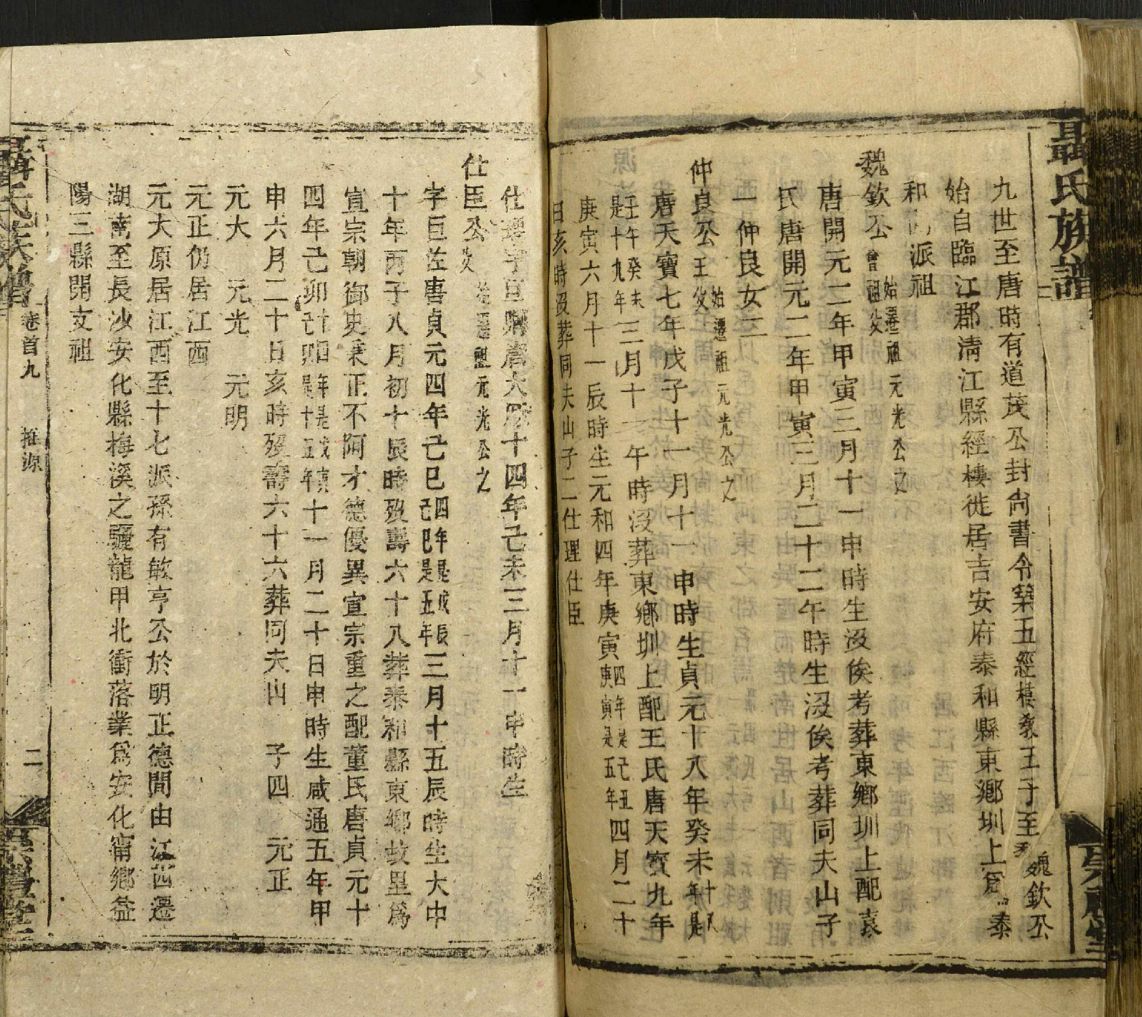 聶氏族譜
九世至唐時有道茂公封尚書令築五經樓教五子至魏欽公
始自臨江郡清江縣經樓徙居吉安府泰和縣東鄉圳上為泰
和派祖
魏欽公 始遷祖元光公之曾祖父
唐開元二年甲寅三月十一申時生沒俟考葬東鄉圳上配袁
氏唐開元二年甲寅三月二十二午時生沒俟考葬同夫山子
一仲良女二
仲良公 始遷祖元光公之王父
唐天寶七年戊子十一月十一申時生貞元十八年癸未
三月十一午時沒葬東鄉圳上配王氏唐天寶九年
庚寅六月十一辰時生元和四年庚寅 四年是己丑庚寅是五年 四月二十
日亥時沒葬同夫山子二仕理仕臣
仕 字巨 唐大曆十四年己未三月十一申時生
仕臣公 始遷祖元光公之父
字巨佐唐貞元四年己巳 四年是戊辰己巳是五年 三月十五辰時生大中
十年丙子八月初十辰時歿壽六十八葬泰和縣東鄉故里為
宣宗朝御史秉正不阿才德優異宣宗重之配董氏唐貞元十
四年己卯 十四年是戊寅己卯是十五年 十一月二十日申時生咸通五年甲
申六月二十日亥時歿壽六十六葬同夫山 子四 元正
元大 元光 元明
元正仍居江西
元大原居江西至十七派孫有敏亨公於明正德間由江西遷
湖南至長沙安化縣梅溪之驪龍甲北衝落業為安化甯鄉益
陽三縣開支祖
聶氏族譜 卷首九 推源 二